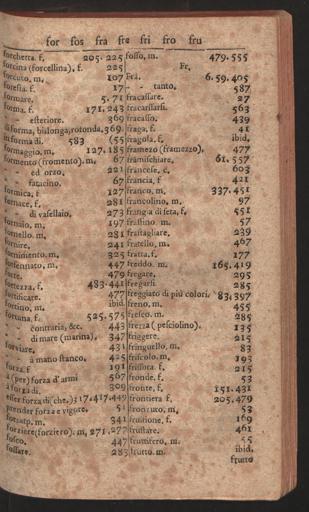 for fos fra fre fri fro fru
forchetta. f. 205. 225
forcina (forcellina), f. 225
forcuto, m. 107
foresta. f. 17
formare. 5. 71
forma. f. 171. 243
- - esteriore. 369
di forma, bislonga, rotonda. 369
in forma di. 583
formaggio, m. 127. 185
formento (fromento). m. 67
- - ed orzo, 221
- - 67
formica, f. 127
fornace, f. 281
- - di vasellaio, 273
fornaio, m. 197
fornello. m. 281
fornire. 241
fornimento. m. 325
forsennato, m. 447
forte. 479
fortezza. f. 483. 441
fortificare. 477
fortino, m. ibid.
fortuna, f. 525. 575
- - contraria, &c. 443
- - di mare (marina), 347
forviare, 431
- - à mano stanco, 425
forza. f. 191
à (per) forza d'armi 567
à forza di. 309
esser forza di (che.) 317. 417. 449
prender forza e vigore, 51
m. 341
forziere (forziero). m. 271. 277
fosco, 447
fossare. 283
fosso, m. 479. 555
Fr.
Frà. 6. 59. 405
- - tanto, 587
fracassare. 27
fracassarsi. 563
fracasso. 439
fraga. f. 41
fragola. f. ibid.
framezo (framezzo), 477
framischiare. 61. 557
francese, c. 603
francia, f 421
franco, m. 337. 451
francolino, m. 97
frangia di seta, f, 551
frassino. m. 57
frastagliare, 239
fratello, m. 467
fratta, f. 177
freddo. m. 165. 419
fregare. 295
fregarsi 285
freggiato di più colori, 83. 397
freno, m. 455
fresco. m. 285
frezza (pesciolino). 135
friggere. 215
fringuello, m. 83
friscolo. m. 193
frissora. f. 215
fronde, f. 53
fronte, f. 151. 431
frontiera f. 205. 479
fronzuto, m, 53
fruitione, f. 169
frustare. 461
fruttifero, m. 55
frutto. m. ibid.
frutto